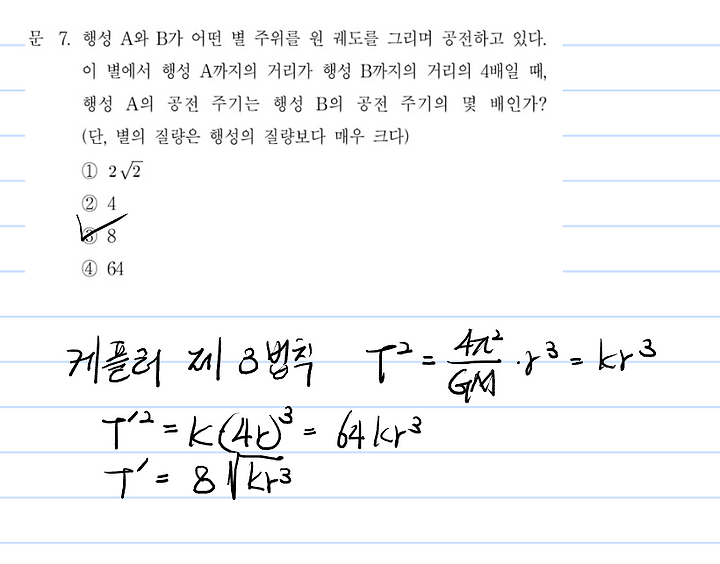 문 7. 행성 A와 B가 어떤 별 주위를 원 궤도를 그리며 공전하고 있다.
이 별에서 행성 A까지의 거리가 행성 B까지의 거리의 4배일 때,
행성 A의 공전 주기는 행성 B의 공전 주기의 몇 배인가?
(단, 별의 질량은 행성의 질량보다 매우 크다)
① 2√2
② 4
③ 8
④ 64
케플러 제 3법칙 T² = 4π²/GM · r³ = kr³
T′² = k(4r)³ = 64kr³
T′ = 8√kr³